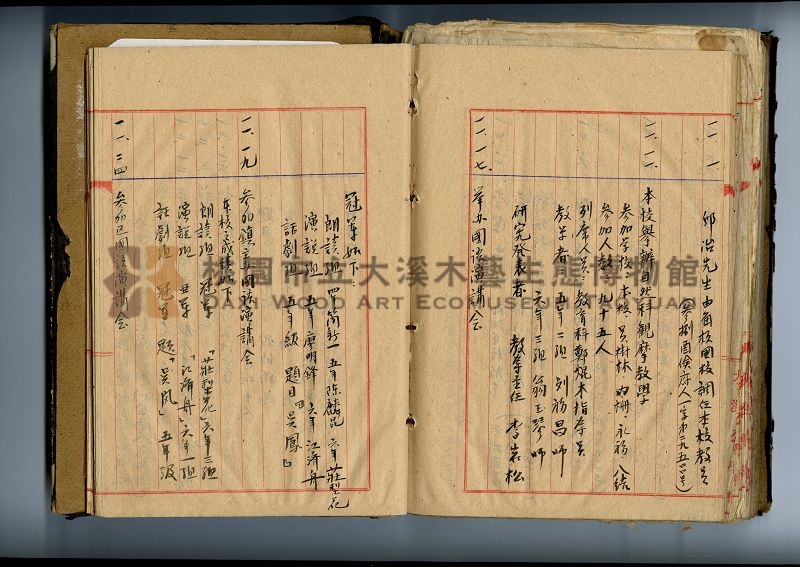 一一.一 邱治先生由角板國校調任本校教員
(參捌酉儉府人一字第二九五四四號)
一一.一一 本校舉辦自然科觀摩教學
參加學校 本校 員樹林 內柵 永福 八結
參加人數 九十五人
列席人員 教育科鄭焜木指導員
教學者 五年二組 劉福昌師
六年三組 翁玉琴師
研究發表者 教導主任 李岩松
一一.一七 舉办國語演講會
冠軍如下:
朗讀組 四年簡新一 五年陳麟昆 六年莊梨花
演說組 五年廖明鋒 六年江濟舟
話劇組 五年級 題目「吳鳳」
一一.一九 參加鎮主辦國語演講會
本校之成績如下
朗讀組 冠軍 「莊梨花」六年三組
演說組 冠軍 「江濟舟」六年一組
話劇組 冠軍 題「吳鳳」五年級
一一.二四 參加區國語演講會
桃園市立大溪木藝生態博物館
DAXI WOOD ART ECOMUSEUM, TAOYUAN